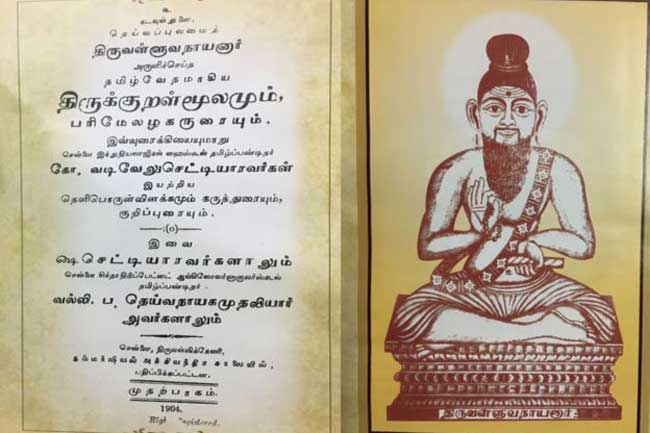 உ
கடவுள் துணை,
தெய்வப்புலமைத்
திருவள்ளுவநாயனார்
அருளிச்செய்த
தமிழ்வேதமாகிய
திருக்குறள்மூலமும்,
பரிமேலழகருரையும்.
இவ்வுரைக்கியையுமாறு
சென்னை இந்துதியலாஜிகல் ஹைஸ்கூல் தமிழ்ப்பண்டிதர்
கோ. வடிவேலுசெட்டியாரவர்கள்
இயற்றிய
தெளிபொருள்விளக்கமும் கருத்துரையும்,
குறிப்புரையும்.
:(o)
இவை
ஷை செட்டியாரவர்களாலும்
சென்னை சிந்தாதிரிப்பேட்டை
தமிழ்ப்பண்டிதர்
வல்லி. ப. தெய்வநாயகமுதலியார்
அவர்களாலும்
சென்னை, திருவல்லிக்கேணி,
கமர்ஷியல் அச்சியந்திர சாலையில்,
பதிப்பிக்கப்பட்டன.
முதற்பாகம்.
1904.
திருவள்ளுவநாயனார்.